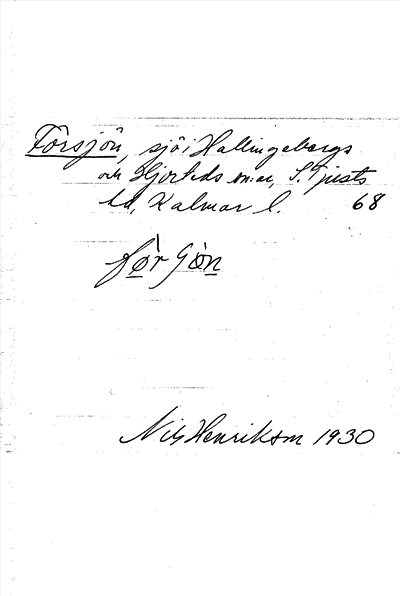 Försjön, sjö i Hallingebergs
och Hjorteds sn:ar, S. Tjusts
hd, Kalmar l. 68
før Søn
Nils Henrikson 1930